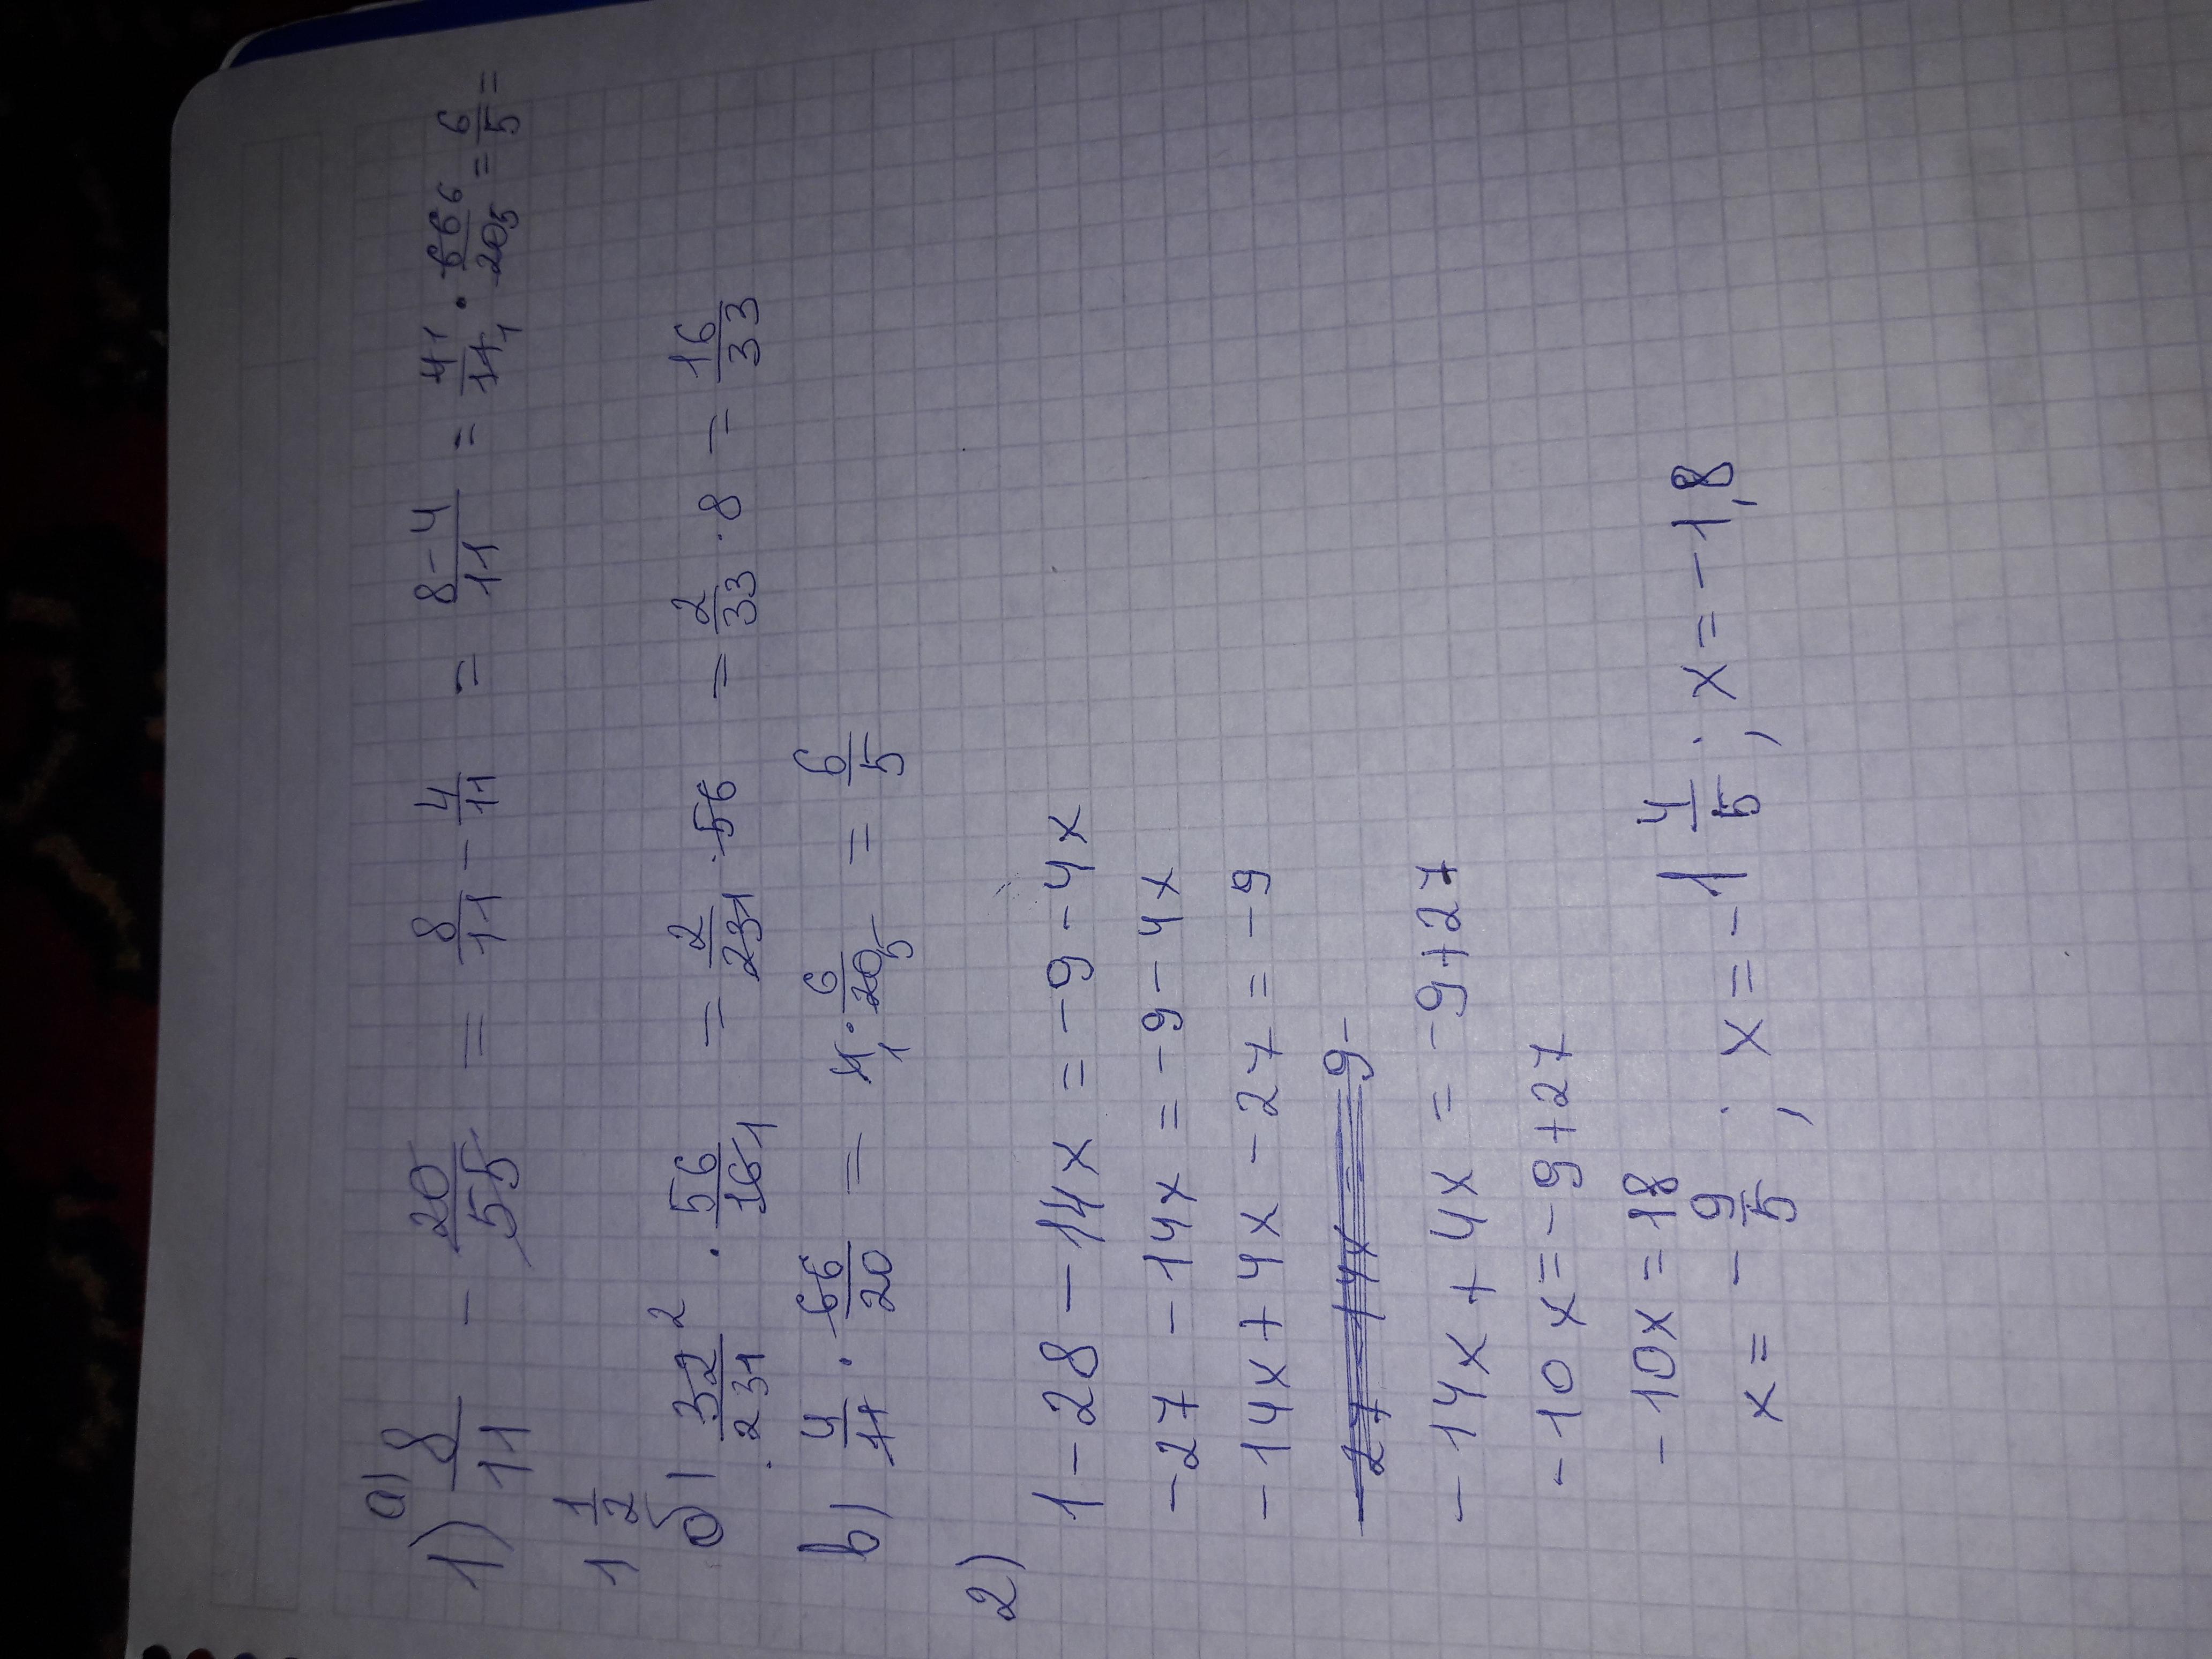 1) а) 8/11 - 20/55 = 8/11 - 4/11 = 8-4/11 = 4 1/11 1 · 66 6/20 5 = 6/5 =
1 1/2
б) 32 2/231 · 56/16 1 = 2/231 · 56 = 2/33 · 8 = 16/33
в) 4/11 · 66/20 = 4 1 · 6/20 5 = 6/5
2) 1 - 28 - 14x = -9 - 4x
-27 - 14x = -9 - 4x
-14x + 4x - 27 = -9
-14x + 4x = -9 + 27
-10x = -9 + 27
-10x = 18
x = - 9/5 ; x = -1 4/5 ; x = -1,8